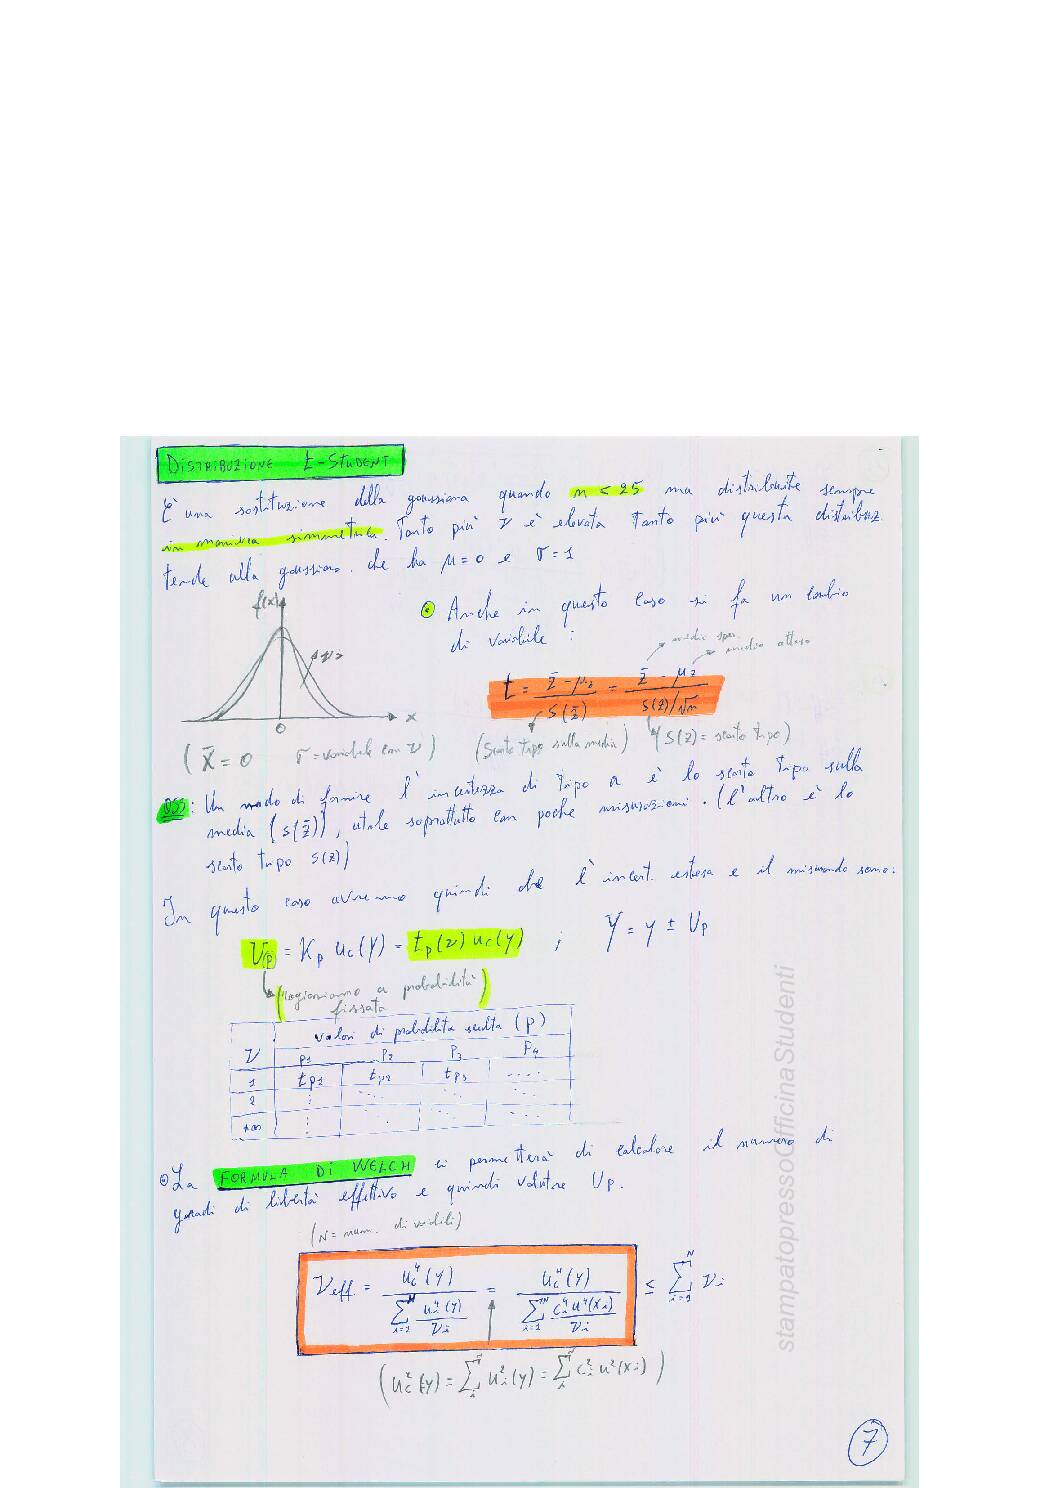 DISTRIBUZIONE t-STUDENT
È una sostituzione della gaussiana quando n < 25 ma distribuite sempre
in maniera simmetrica. Tanto più ν è elevata tanto più questa distribuz.
tende alla gaussiana che ha μ=0 e σ=1
f(x)
x
0
( x̄ = 0 σ = variabile con ν )
Anche in questo caso si fa un cambio
di variabile :
media sper.
media attesa
t = z̄ - μz / S(z̄) = z̄ - μz / S(z)/√n
(Scarto tipo sulla media) ( S(z) = scarto tipo )
OSS: Un modo di fornire l'incertezza di tipo A è lo scarto tipo sulla
media (S(z̄)), utile soprattutto con poche misurazioni. (l'altro è lo
scarto tipo S(z))
In questo caso avremo quindi che l'incert. estesa e il misurando sono:
U(p) = Kp uc(y) = tp(ν) uc(y) ; Y = y ± Up
(ragioniamo a probabilità
fissata)
valori di probabilità scelta (p)
ν p1 p2 p3 p4
1 tp1 tp2 tp3 ....
2
+∞
La FORMULA DI WELCH ci permetterà di calcolare il numero di
gradi di libertà effettivo e quindi valutare Up.
(N = num. di variabili)
νeff. = uc⁴(y) / Σ i=1 N ui⁴(y)/νi = uc⁴(y) / Σ i=1 N ci⁴ u⁴(xi)/νi ≤ Σ i=1 N νi
( uc²(y) = Σ i N ui²(y) = Σ i N ci² u²(xi) )
7
stampatopressoOfficinaStudenti